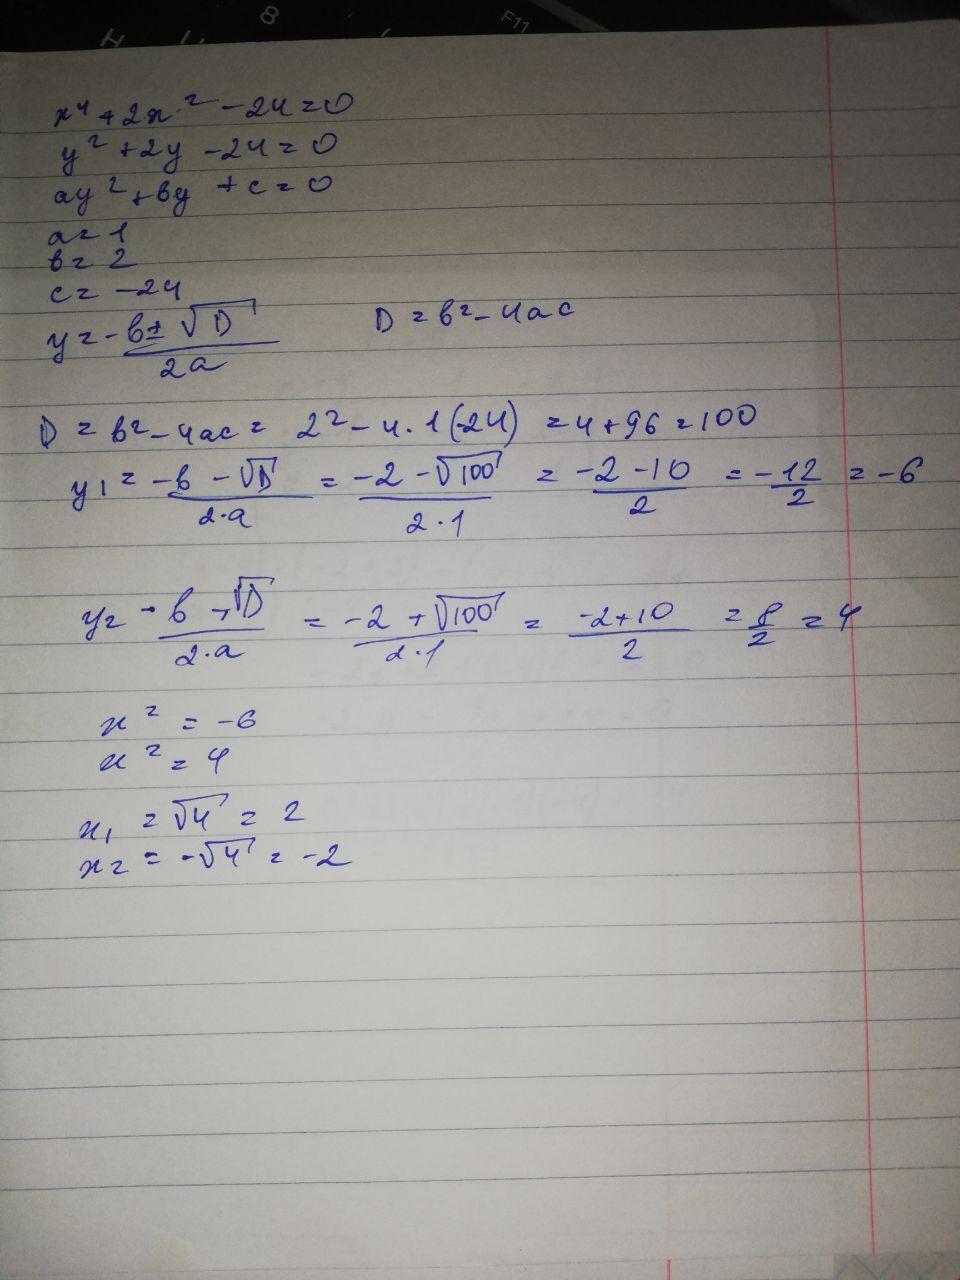 8
F11
x⁴ + 2x² - 24 = 0
y² + 2y - 24 = 0
ay² + by + c = 0
a = 1
b = 2
c = -24
y = -b ± √D / 2a    D = b² - 4ac
D = b² - 4ac = 2² - 4 · 1 (-24) = 4 + 96 = 100
y₁ = -b - √D / 2·a = -2 - √100 / 2·1 = -2 - 10 / 2 = -12 / 2 = -6
y₂ = -b + √D / 2·a = -2 + √100 / 2·1 = -2 + 10 / 2 = 8 / 2 = 4
x² = -6
x² = 4
x₁ = √4 = 2
x₂ = -√4 = -2